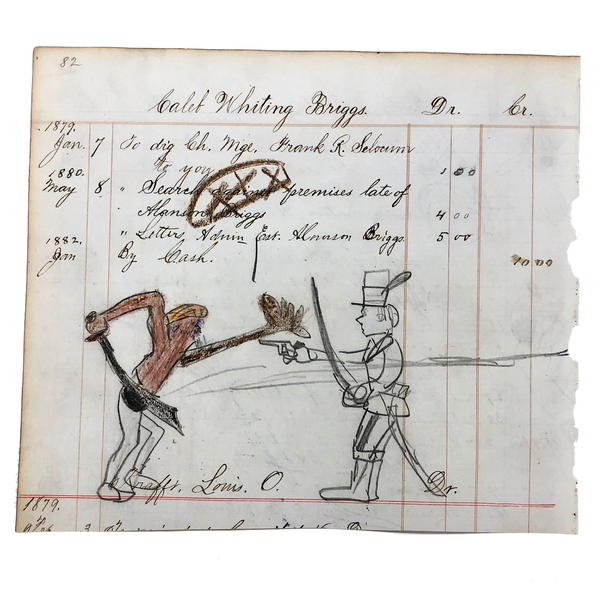 82
Caleb Whiting Briggs. Dr. Cr.
1879.
Jan. 7 To dig Ch. Mge. Frank R. Slocum
to you 1 00
1880.
May 8 " Search against premises late of
Alanson Briggs 4 00
1882. " Letters Admin Est. Alanson Briggs 5 00
Jan By Cash. 10 00
Crafft, Louis, O. Dr.
1879.
3